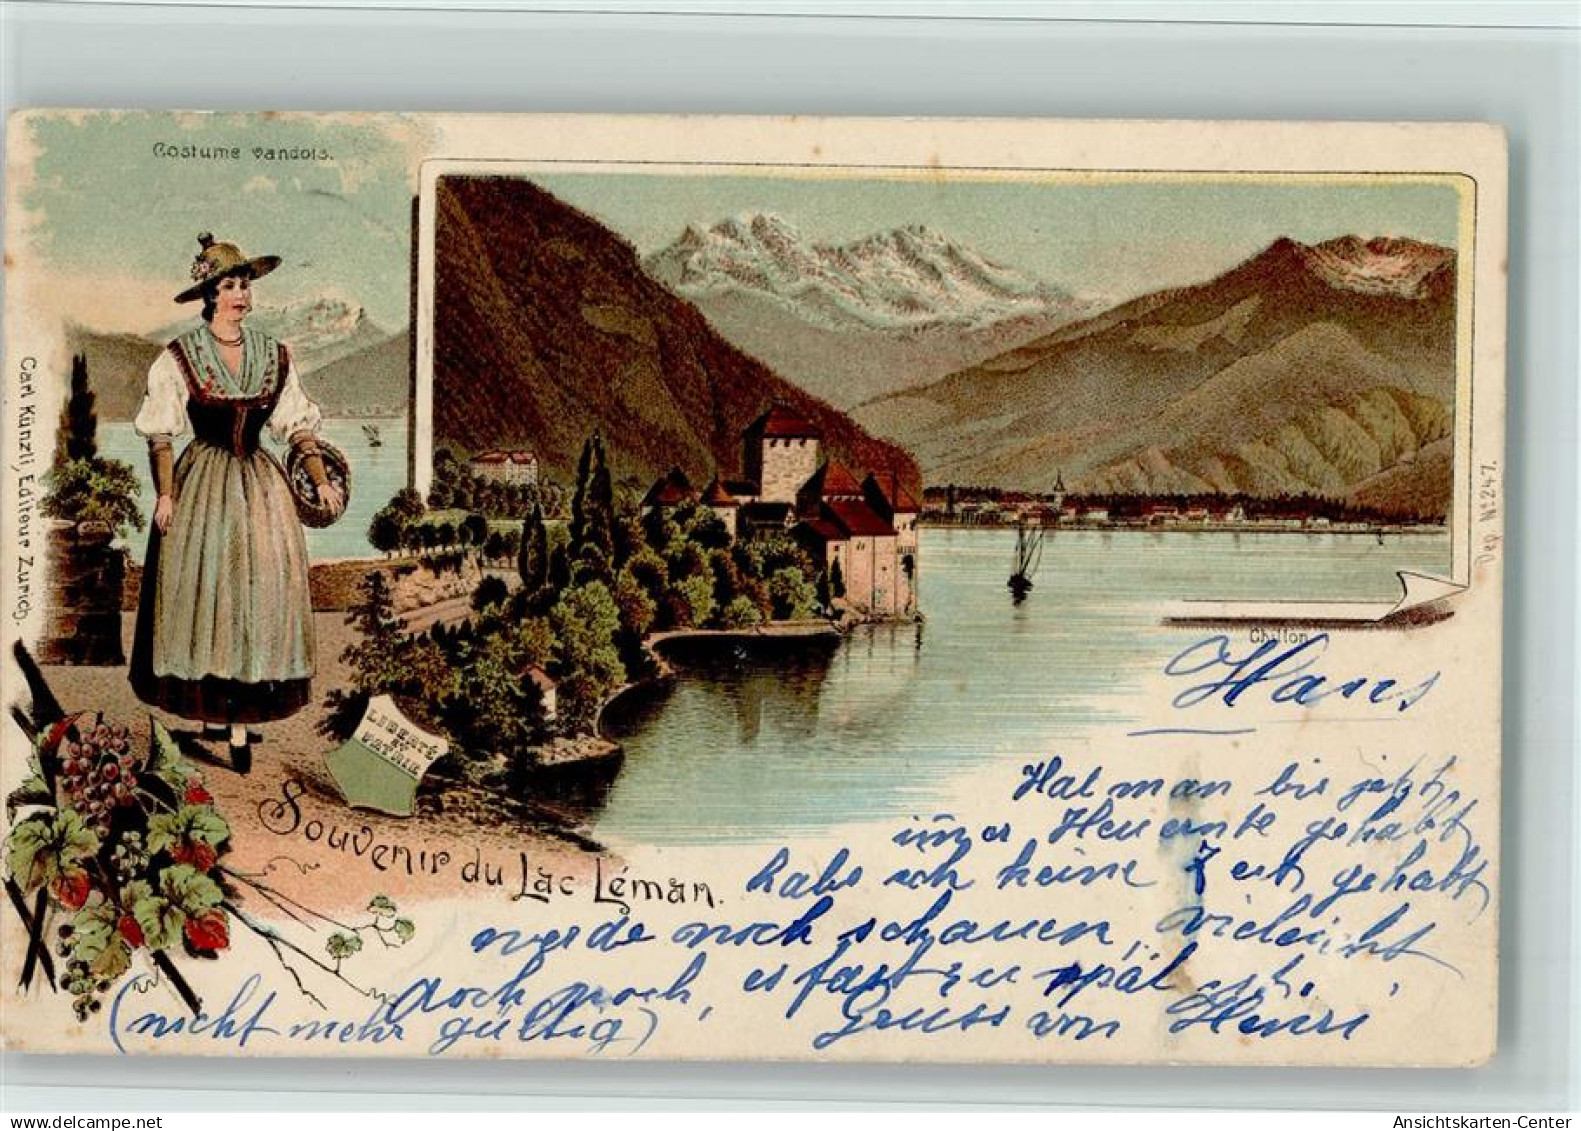 Costume vaudois.
Carl Künzli, Editeur Zürich.
Dep. Nº 247.
Chillon
LIBERTÉ
ET
PATRIE
Souvenir du Lac Léman.
Hans
Hat man bis jetzt,
imer Heuernte gehabt
habe ich keine Zeit gehabt
werde noch schauen, vieleicht
doch noch, es fast zu spät ist.
(nicht mehr gültig) Gruss von Henri
Ansichtskarten-Center
www.delcampe.net